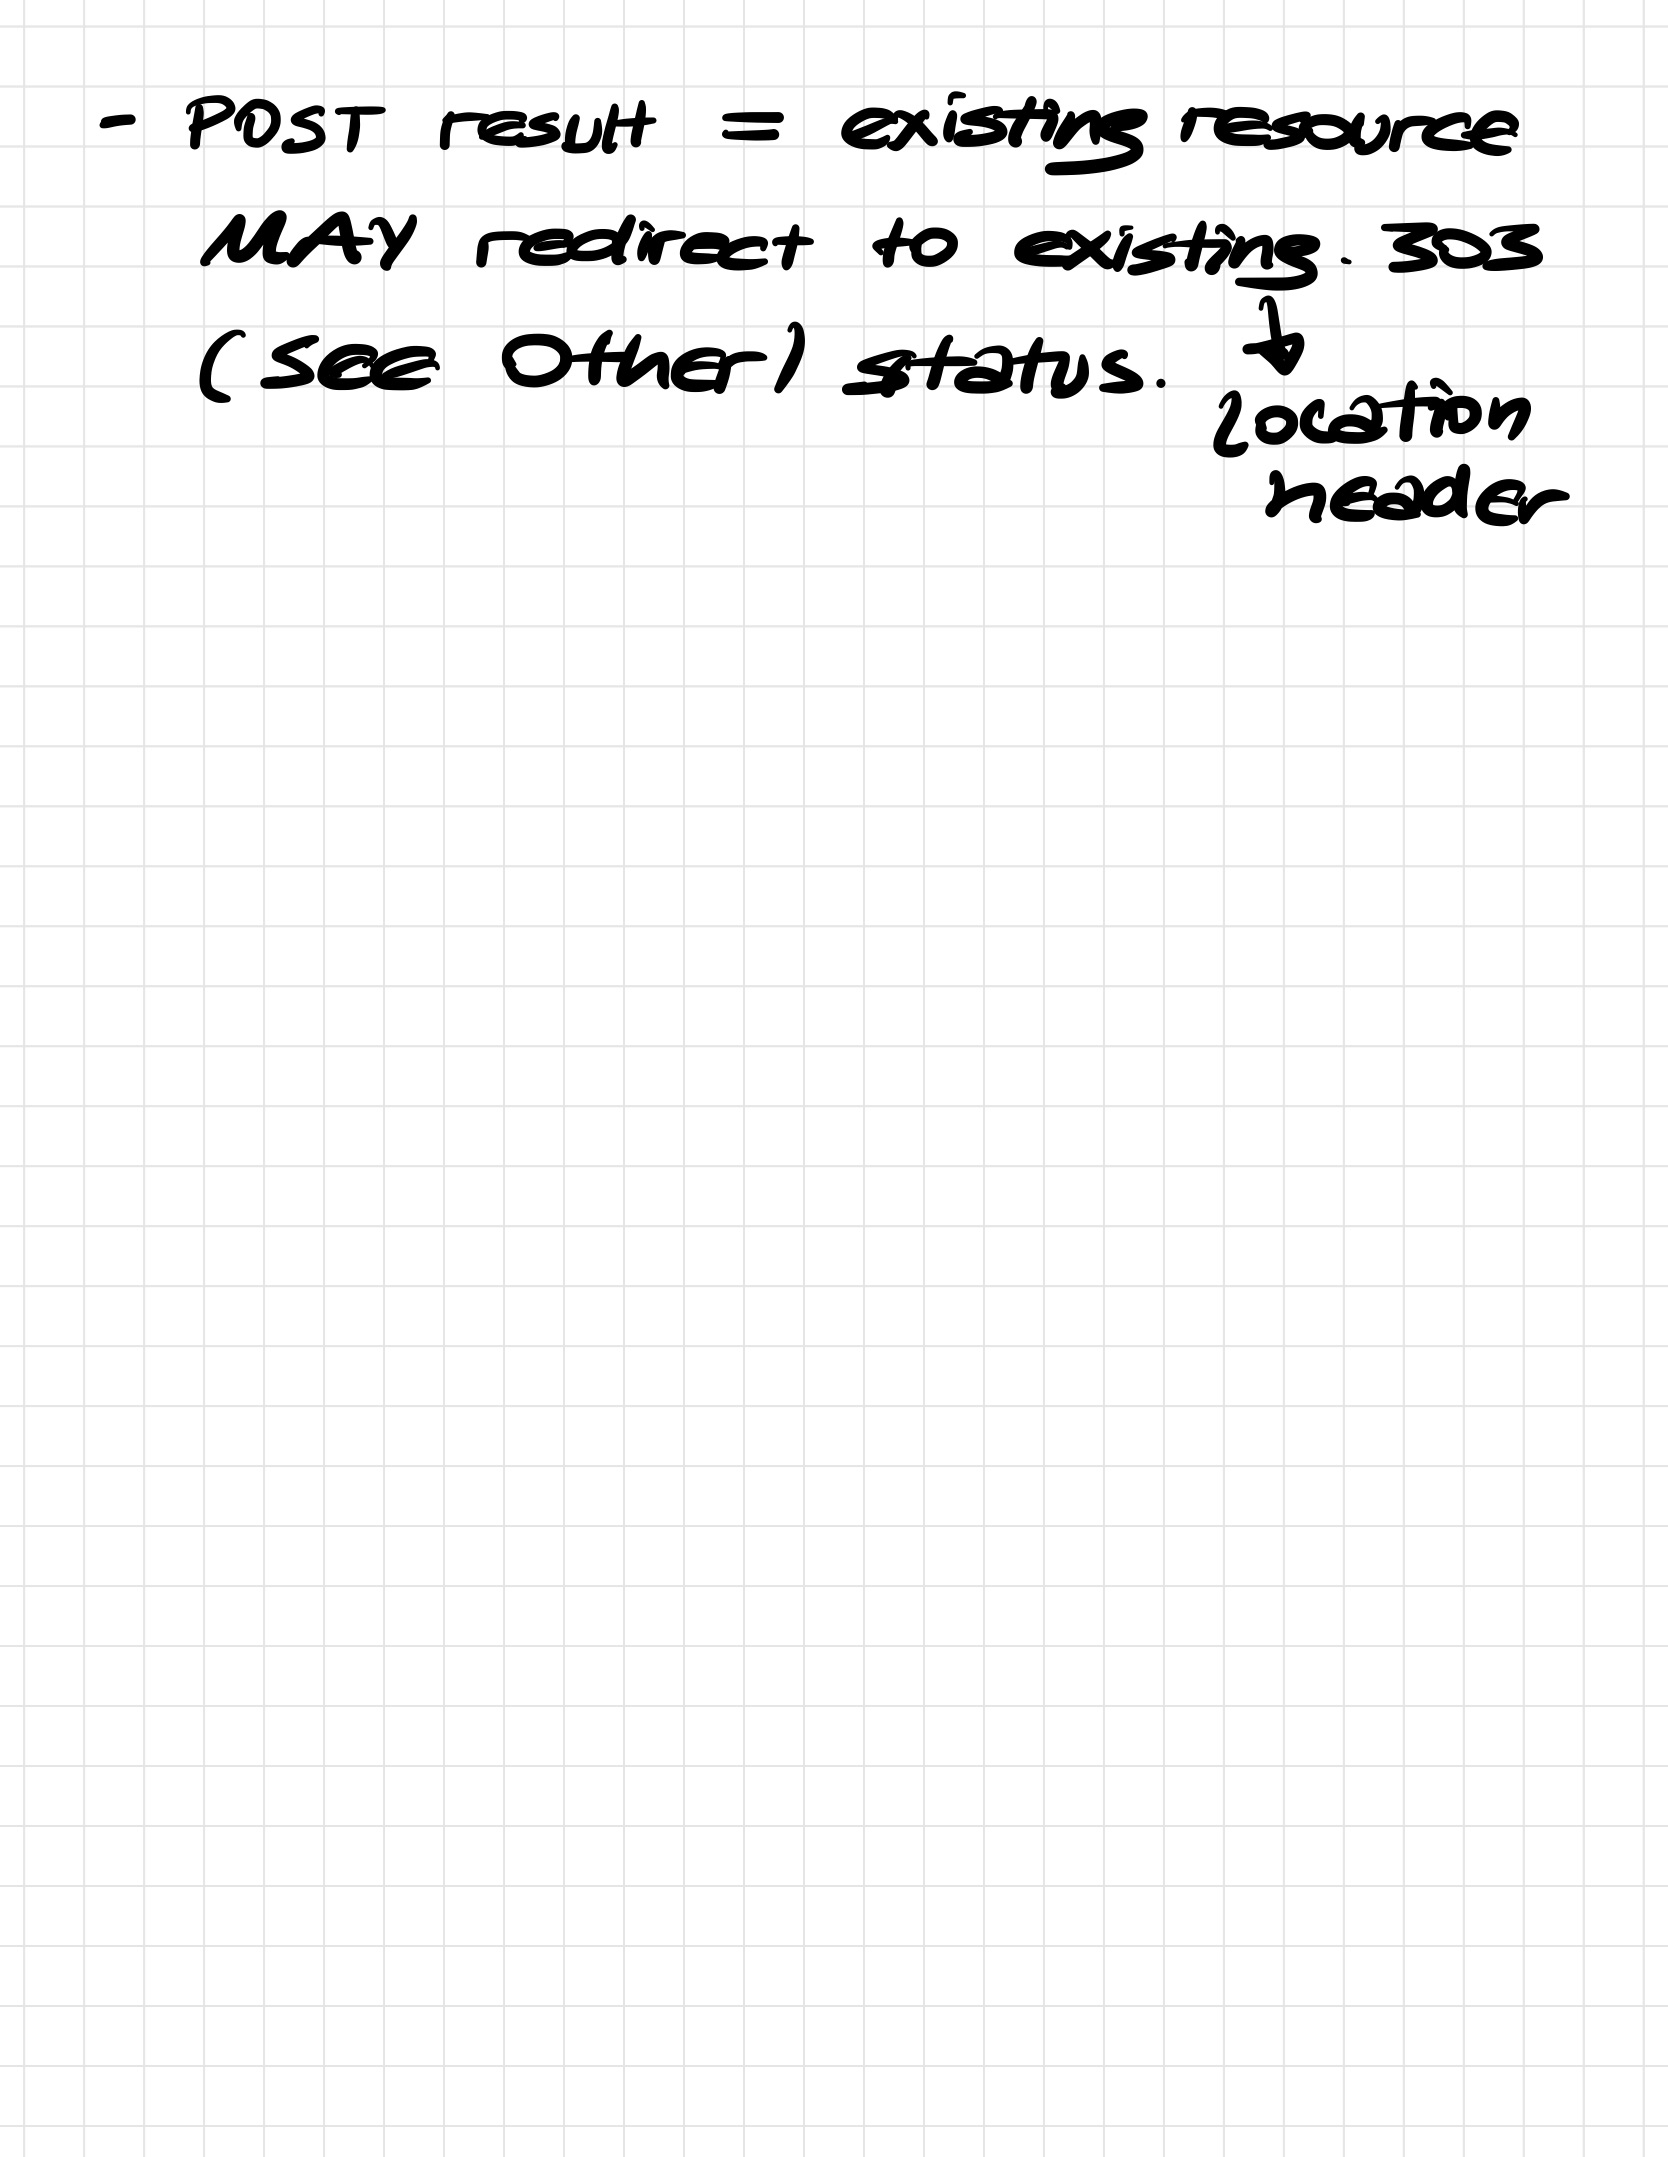 - POST result = existing resource
MAY redirect to existing. 303
(See Other) status.
↓
location
header